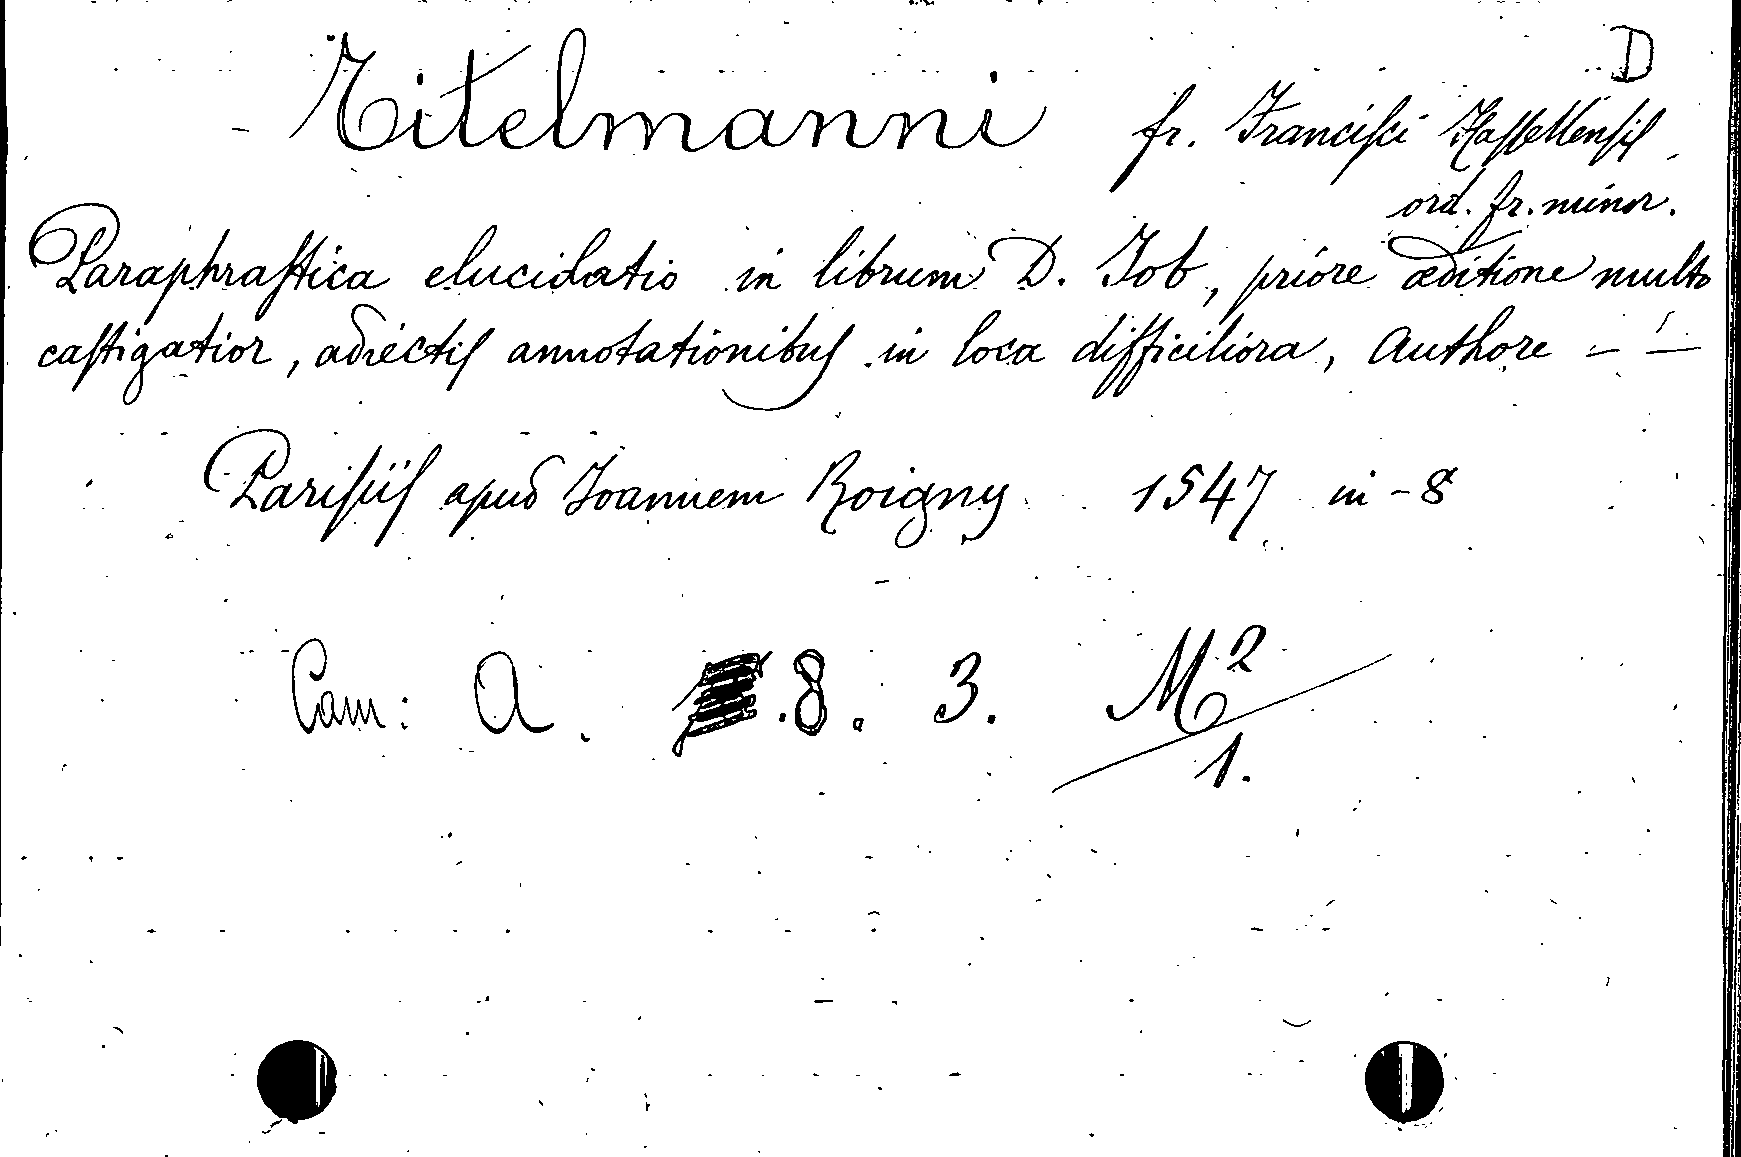 D
Titelmanni fr. Franciſci Haſſellenſiſ
ord. fr. minor.
Paraphraſtica elucidatio in librum D. Job, priore æditione multo
caſtigatior, adiectiſ annotationibuſ in loca difficiliora, Authore - -
Pariſiiſ apud Joannem Roigny 1547 in-8
Cam: A. .8. 3. M2
1.